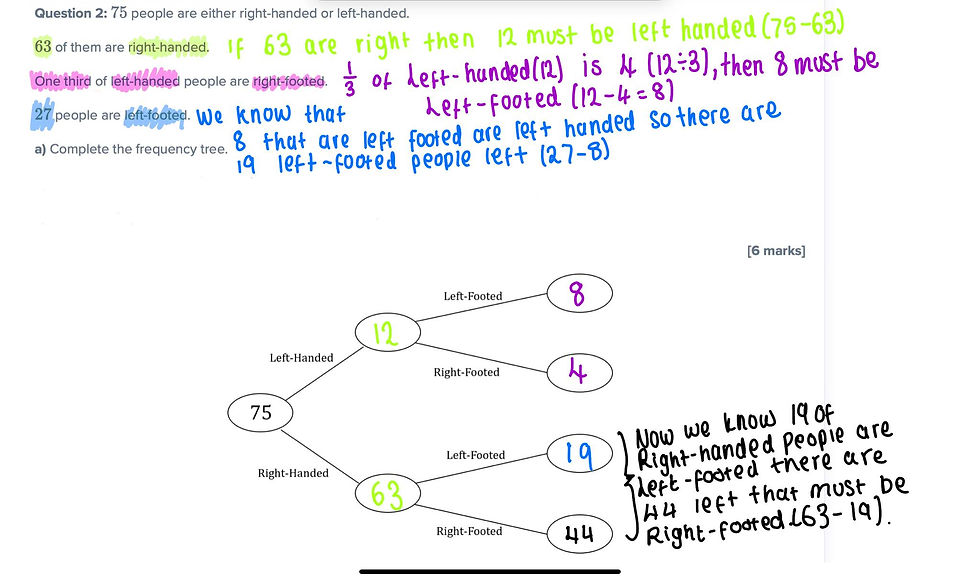 Question 2: 75 people are either right-handed or left-handed.
63 of them are right-handed. If 63 are right then 12 must be left handed (75-63)
One third of left-handed people are right-footed. 1/3 of left-handed (12) is 4 (12÷3), then 8 must be
Left-footed (12-4=8)
27 people are left-footed. We know that
8 that are left footed are left handed so there are
a) Complete the frequency tree.
19 left-footed people left (27-8)
[6 marks]
Left-Footed
8
12
Left-Handed
Right-Footed
4
75
Now we know 19 of
Right-handed people are
Left-footed there are
44 left that must be
Right-footed (63-19).
Left-Footed
19
Right-Handed
63
Right-Footed
44